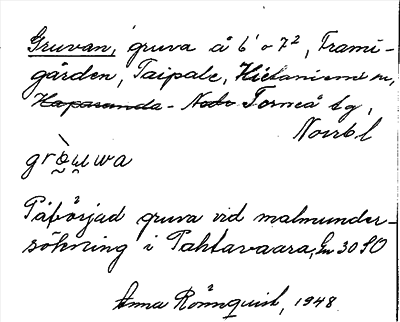 Gruvan, gruva å 6' o 7², Frami-
gården, Taipale, Hietaniemi sn,
Haparanda - Nedr Torneå tg,
Norrb l
gròu̯wa
Påbörjad gruva vid malmunder-
sökning i Pahtavaara, 30 SO
Anna Rönnquist, 1948